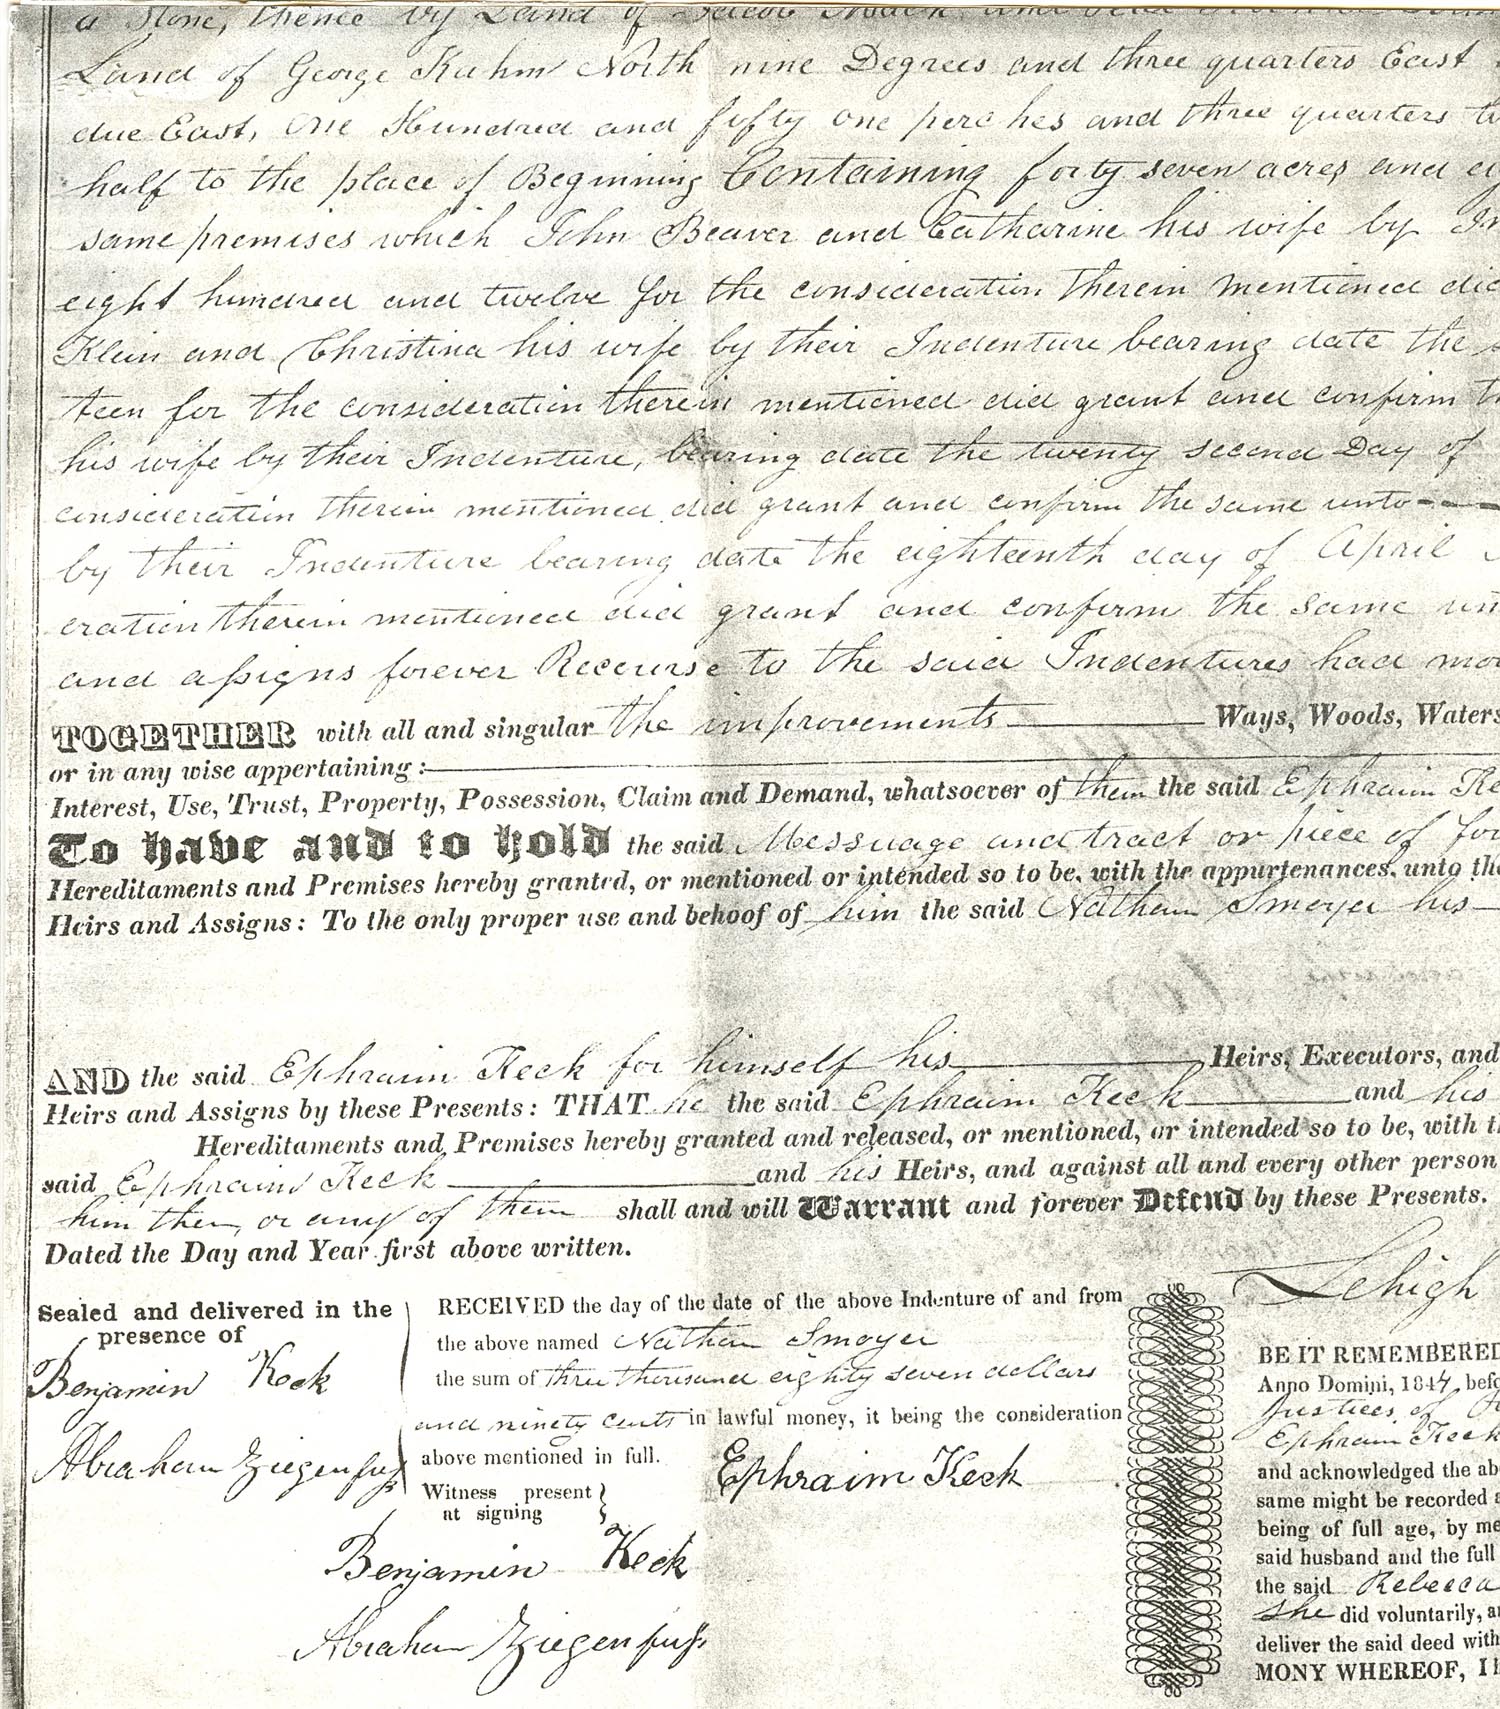 a Stone, thence by Land of Jacob
Land of George Kuhm North nine Degrees and three quarters East
due East, One Hundred and fifty one perches and three quarters
half to the place of Beginning Containing forty seven acres and
same premises which John Beaver and Catharine his wife by
eight hundred and twelve for the consideration therein mentioned did
Klein and Christina his wife by their Indenture bearing date the
teen for the consideration therein mentioned did grant and confirm
his wife by their Indenture, bearing date the twenty second Day of
consideration therein mentioned did grant and confirm the same unto
by their Indenture bearing date the eighteenth day of April
eration therein mentioned did grant and confirm the same un
and assigns forever Recourse to the said Indentures had mo
TOGETHER with all and singular the improvements Ways, Woods, Waters
or in any wise appertaining:
Interest, Use, Trust, Property, Possession, Claim and Demand, whatsoever of them the said Ephraim Ke
To have and to hold the said Messuage and tract or piece of
Hereditaments and Premises hereby granted, or mentioned or intended so to be, with the appurtenances, unto the
Heirs and Assigns: To the only proper use and behoof of him the said Nathan Smoyer his
AND the said Ephraim Keck for himself his Heirs, Executors, and
Heirs and Assigns by these Presents: THAT he the said Ephraim Keck and his
Hereditaments and Premises hereby granted and released, or mentioned, or intended so to be, with th
said Ephraim Keck and his Heirs, and against all and every other person
him them, or any of them shall and will Warrant and forever Defend by these Presents.
Dated the Day and Year first above written.
Sealed and delivered in the
presence of
Benjamin Keck
Abraham Ziegenfuss
RECEIVED the day of the date of the above Indenture of and from
the above named Nathan Smoyer
the sum of three thousand eighty seven dollars
and ninety cents in lawful money, it being the consideration
above mentioned in full.
Ephraim Keck
Witness present
at signing
Benjamin Keck
Abraham Ziegenfuss
Lehigh
BE IT REMEMBERED
Anno Domini, 1844, befo
Justices of
Ephraim Keck
and acknowledged the ab
same might be recorded a
being of full age, by me
said husband and the full
the said Rebecca
she did voluntarily, a
deliver the said deed with
MONY WHEREOF, I h